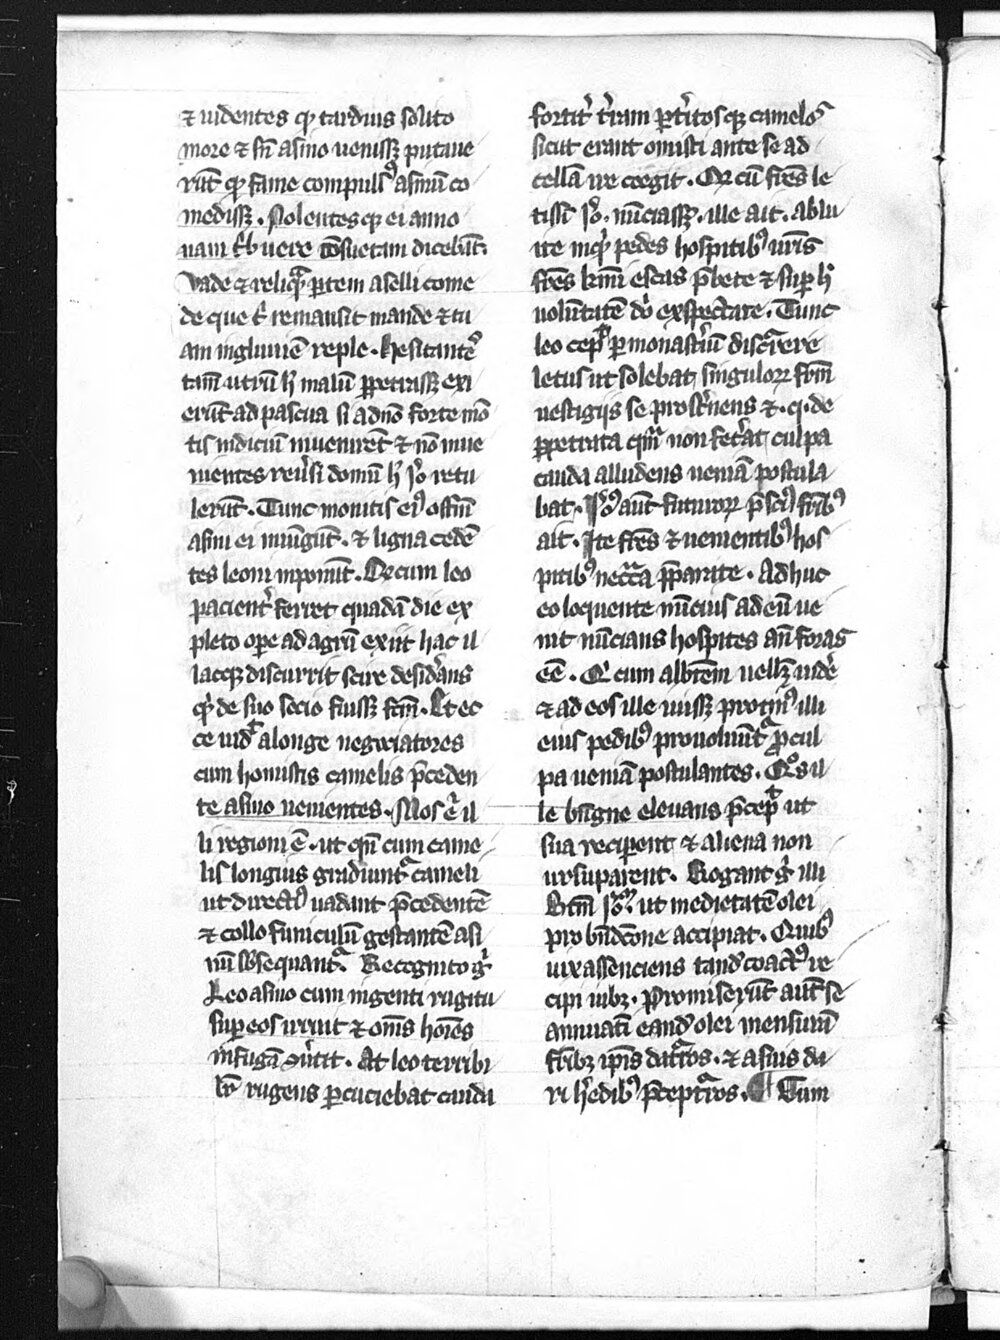 ⁊ uidentes ꝙ tardius solito
more ⁊ sn̄ asino uenissꝫ putaue
rūt ꝙ fame compulsꝰ asinū co
medissꝫ. Nolentesqꝫ ei anno
nam s̄b uere cōsuetam dicebāt.
Vade ⁊ reliquā ꝑtem aselli come
de que t̄ remansit mande ⁊ tu
am ingluuiē reple. Hesitantes
tam̄ utrū h̄ malū ꝑpetrassꝫ exi
erūt ad pascua si aduō forte mō
tis indiciū inuenirēt ⁊ nō inue
nientes reuͥsi domū h̄ Jeͦ retu
lerūt. Tunc monitis eiꝰ offm̄
asini ei iniūgūt. ⁊ ligna cedē
tes leoni inponūt. Qd̄ cum leo
pacient̾ ferret quadā die ex
pleto oꝑe ad agrū exiit hac il
lacqꝫ discurrit scire desid̾ans
qͥd de suo socio fuissꝫ fcm̄. Et ec
ce uidꝫ alonge negociatores
cum honustis camelis p̄ceden
te asino uenientes. Mos ē il
li regioni ē. ut qn̄ cum came
lis longius gradiunt᷑ cameli
ut directiꝰ uadant p̄cedentē
⁊ collo funiculū gestantē asi
nū sb̄sequant᷑. Recognito gͥ
Leo asino cum ingenti rugitu
suꝑ eos irruit ⁊ om̄s hoīes
in fugā ūtit. At leo terribi
lit̾ rugens ꝑcuciebat cauda
fortit̾ t̾ram ꝑt̾ritosqꝫ camelos
sicut erant onusti ante se ad
cellā ire coegit. Qd̄ cū fr̄es le
tissī Jeͦ. nūciassꝫ. ille ait. ablu
ite inqͥ pedes hospitibꝰ ur̄is
fr̄es kr̄mi escas p̄bete ⁊ suꝑ hͦ
uolūtatē dn̄i exspectare. Tunc
leo cepͭ ꝑ monast̾iū discurrere
letus ut solebat, singuloꝝ fr̄m
uestigijs se prost̾nens ⁊.q. de
ꝑpetrata qm̄ non fec̾at, culpa
cauda alludens ueniā postula
bat. Jeͦꝰ aūt futuroꝝ p̄sciꝰ fr̄ibꝰ
ait. Ite fr̄es ⁊ uenientibꝰ hos
pitibꝰ necc̄a p̄parate. Adhuc
eo loquente nūcius ad eū ue
nit nūcians hospites an̄ foras
eē. Qͥ cum abb̄tem uell̄ꝫ uidē
⁊ ad eos ille iuissꝫ protinꝰ illi
eius pedibꝰ prouoluūt᷑ ꝓ cul
pa ueniā postulantes. Qͦs il
le bn̄igne eleuans p̄cepͭ ut
sua reciꝑent ⁊ aliena non
ursuparent. Rogant gͥ illi
Btm̄ Jeͦꝫ ut medietatē olei
pro bn̄dcōne accipiat. Quibꝰ
uix assenciens tand̄ coactꝰ re
cipi iubꝫ. Promiserūt aūt se
annuatī eand̄ olei mensurā
fr̄ibꝫ ip̄is daturos. ⁊ a suis da
ri h̾edibꝰ p̄cepturos. ¶ Tum